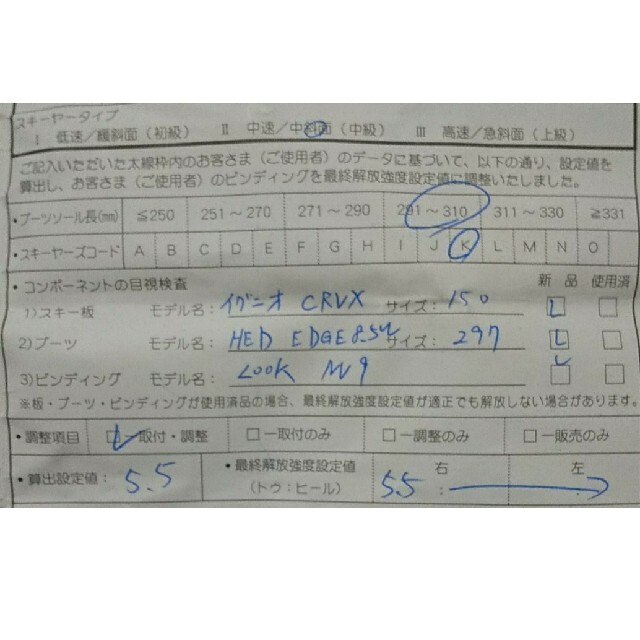 スキーヤータイプ
Ⅰ 低速／緩斜面（初級） Ⅱ 中速／中斜面（中級） Ⅲ 高速／急斜面（上級）
ご記入いただいた太線枠内のお客さま（ご使用者）のデータに基づいて、以下の通り、設定値を
算出し、お客さま（ご使用者）のビンディングを最終解放強度設定値に調整いたしました。
・ブーツソール長(mm) ≦250 251～270 271～290 291～310 311～330 ≧331
・スキーヤーズコード A B C D E F G H I J K L M N O
・コンポーネントの目視検査 新品 使用済
1)スキー板 モデル名：イグニオ CRVX サイズ：150
2)ブーツ モデル名：HED EDGE8.5W サイズ：297
3)ビンディング モデル名：LOOK NV9
※板・ブーツ・ビンディングが使用済品の場合、最終解放強度設定値が適正でも解放しない場合があります。
・調整項目 □－取付・調整 □－取付のみ □－調整のみ □－販売のみ
・算出設定値：5.5 ・最終解放強度設定値 右 左
（トゥ：ヒール） 5.5 : :